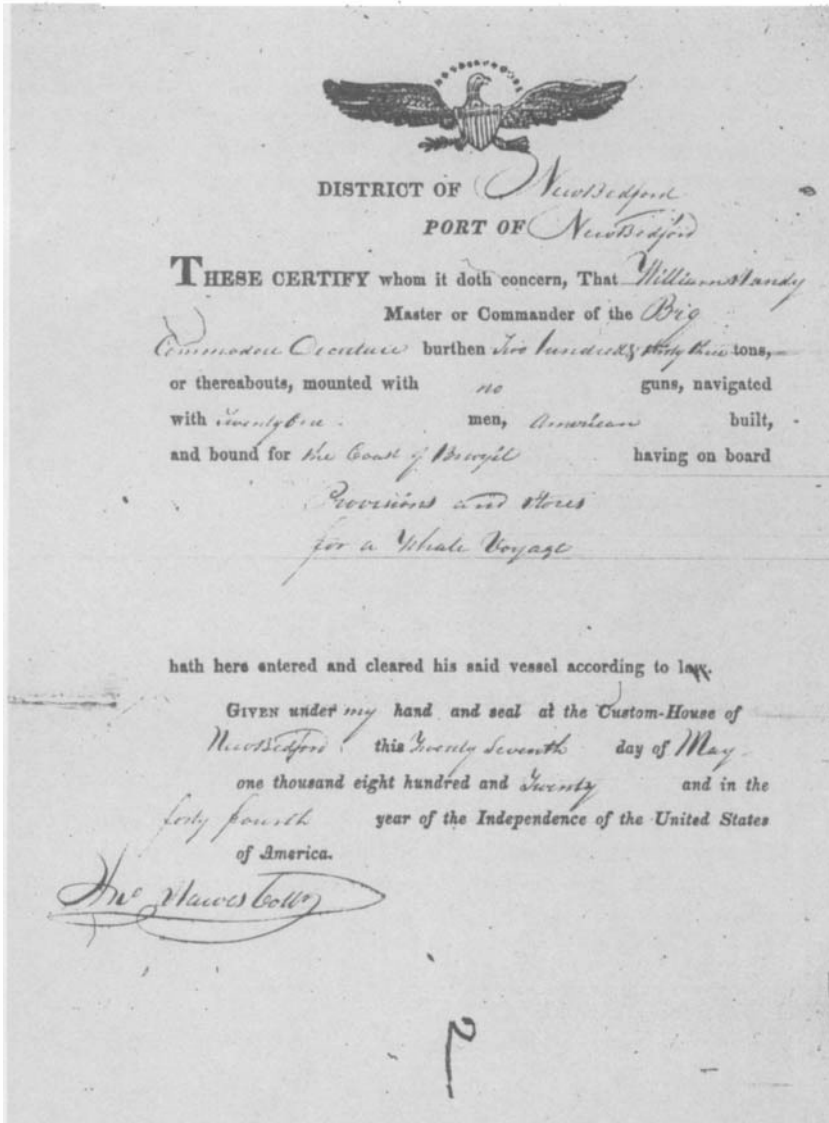 DISTRICT OF New Bedford
PORT OF New Bedford
THESE CERTIFY whom it doth concern, That William Handy
Master or Commander of the Brig
Commodore Decature burthen Two hundred & thirty three tons,
or thereabouts, mounted with no guns, navigated
with Twenty One men, American built,
and bound for the Coast of Brazil having on board
Provisions and Stores
for a Whale Voyage
hath here entered and cleared his said vessel according to law.
GIVEN under my hand and seal at the Custom-House of
New Bedford this Twenty Seventh day of May
one thousand eight hundred and Twenty and in the
forty fourth year of the Independence of the United States
of America.
Jno Hawes Collr
2